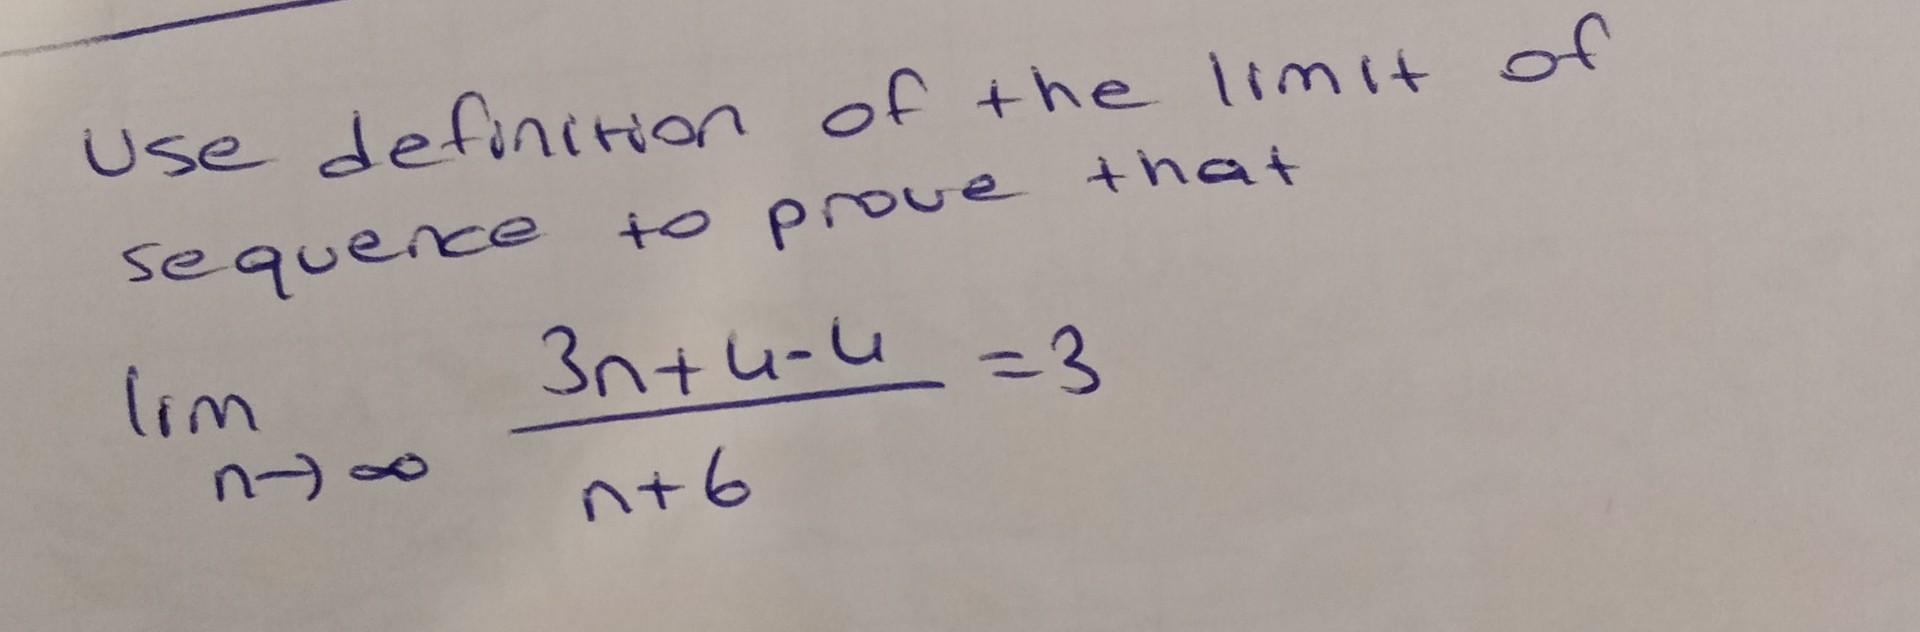 Use definition of the limit of
sequence to prove that
lim n→∞ (3n+4-4)/(n+6) =3